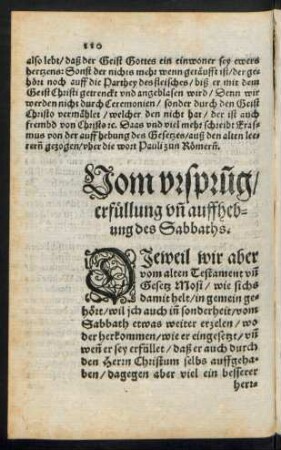 110
also lebt/ daß der Geist Gottes ein einwoner sey ewers
hertzens: Sonst der nichts mehr wenn getäufft ist/ der ge-
hört noch auff die Parthey des fleisches/ biß er mit dem
Geist Christi getrenckt vnd angeblasen wird/ Denn wir
werden nicht durch Ceremonien/ sonder durch den Geist
Christo vermählet/ welcher den nicht hat/ der ist auch
frembd von Christo ꝛc. Saas vnd viel mehr schreibt Eras-
mus von der auffhebung des Gesetzes/ auß den alten lee-
rern̄ gezogen/ vber die wort Pauli zun Römern̄.
Vom vrsprūg/
erfüllung vn̄ auffheb-
ung des Sabbaths.
DJeweil wir aber
vom alten Testament vn̄
Gesetz Mosi/ wie sichs
damit helt/ in gemein ge-
hört/ wil jch auch in̄ sonderheit/ vom
Sabbath etwas weiter erzelen/ wo
der herkommen/ wie er eingesetzt/ vn̄
wen̄ er sey erfüllet/ daß er auch durch
den Herrn Christum selbs auffgeha-
ben/ dagegen aber viel ein besserer
herr-